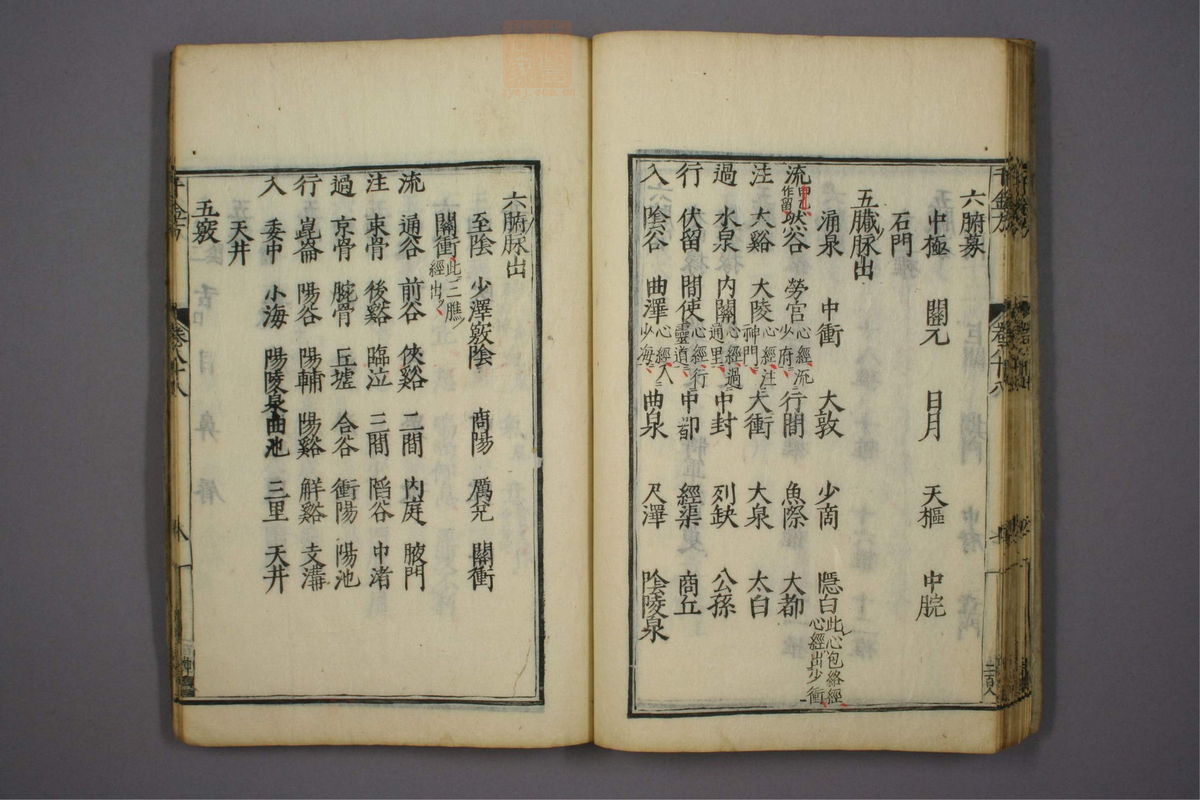 六腑募
中極 關元 日月 天樞 中脘
石門
五臟脉出
涌泉 中衝 大敦 少商 隱白此心包絡經心經出少衝
流甲乙作留 然谷 勞宫心經流少府 行間 魚際 大都
注 大谿 大陵心經注神門 大衝 大泉 太白
過 水泉 内關心經過通里 中封 列缺 公孫
行 伏留 間使心經行靈道 中郄 經渠 商丘
入 陰谷 曲澤心經入少海 曲泉 尺澤 陰陵泉
六腑脉出
至陰 少澤 竅陰 商陽 厲兊 關衝
關衝此三膲經出
流 通谷 前谷 俠谿 二間 内庭 腋門
注 束骨 後谿 臨泣 三間 陷谷 中渚
過 京骨 腕骨 丘墟 合谷 衝陽 陽池
行 崑崙 陽谷 陽輔 陽谿 觧谿 支溝
入 委中 小海 陽陵泉 曲池 三里 天井
天井
五竅
千金方